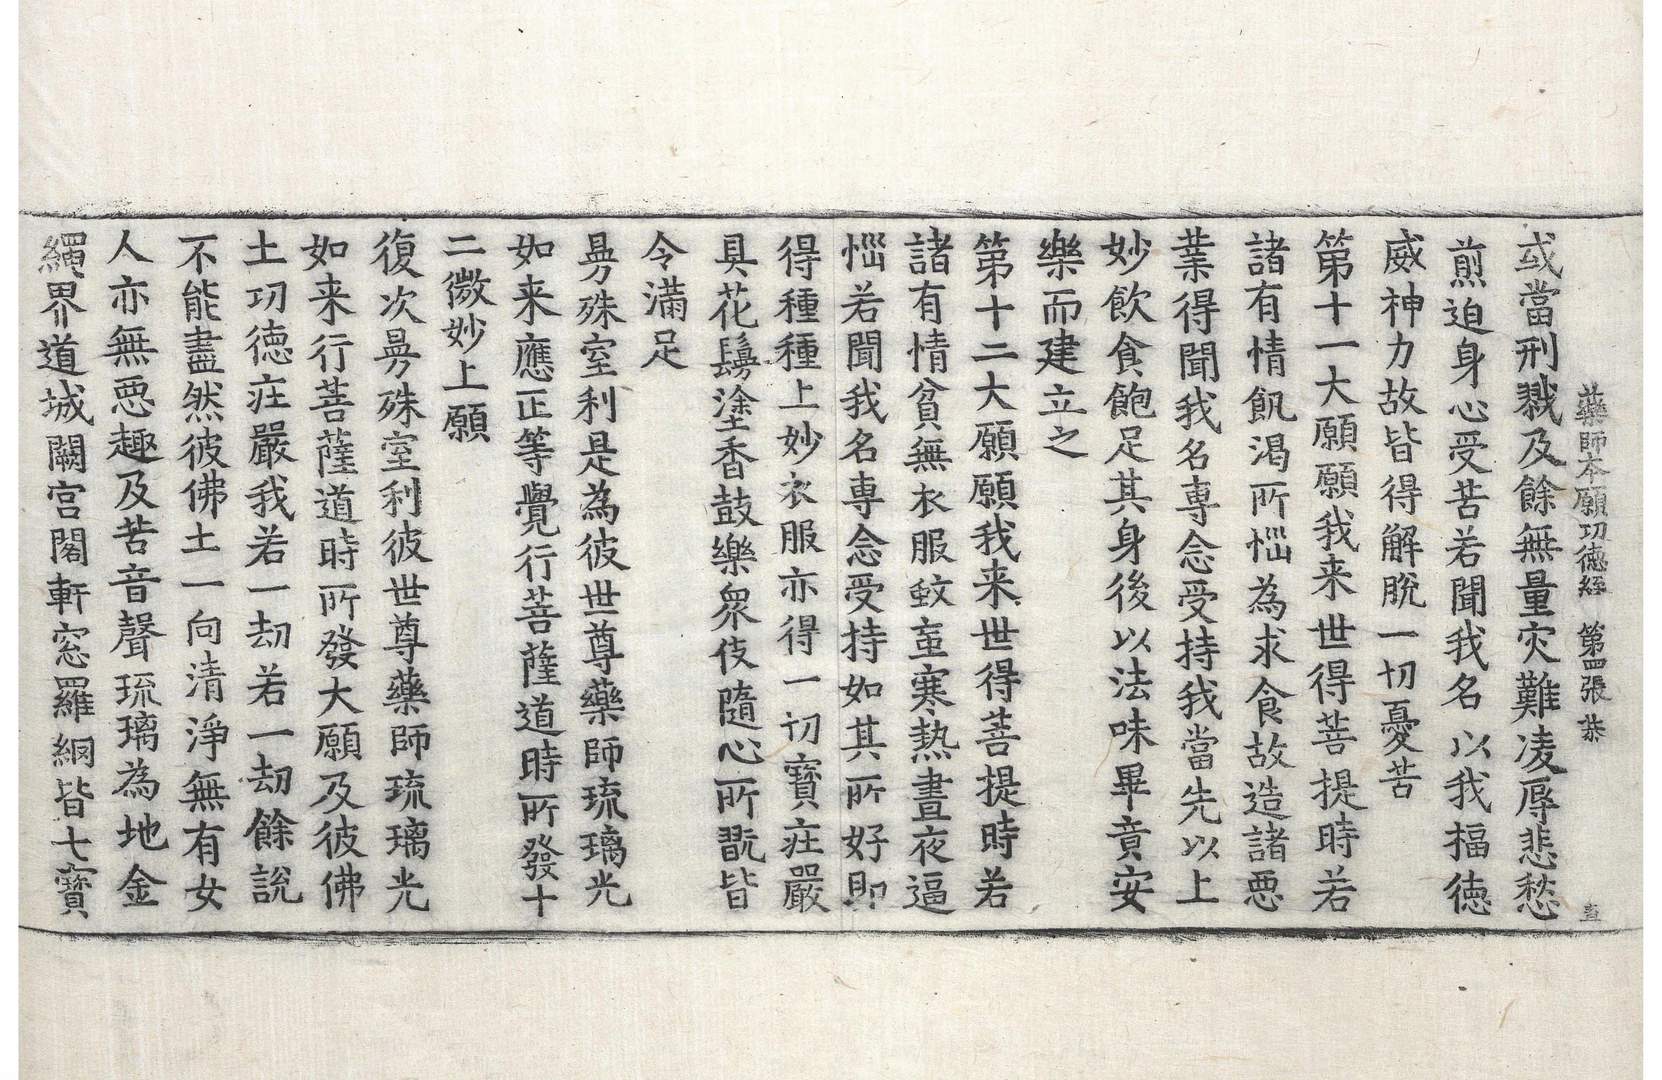 藥師本願功德經 第四張 恭
或當刑戮及餘無量灾難凌辱悲愁
煎迫身心受苦若聞我名以我福德
威神力故皆得解脫一切憂苦
第十一大願願我来世得菩提時若
諸有情飢渴所惱為求食故造諸惡
業得聞我名専念受持我當先以上
妙飲食飽足其身後以法味畢竟安
樂而建立之
第十二大願願我来世得菩提時若
諸有情貧無衣服蚊䖟寒熱晝夜逼
惱若聞我名専念受持如其所好即
得種種上妙衣服亦得一切寶莊嚴
具花鬘塗香鼓樂衆伎隨心所翫皆
令滿足
曼殊室利是為彼世尊藥師琉璃光
如来應正等覺行菩薩道時所發十
二微妙上願
復次曼殊室利彼世尊藥師琉璃光
如来行菩薩道時所發大願及彼佛
土功德莊嚴我若一劫若一劫餘說
不能盡然彼佛土一向清淨無有女
人亦無惡趣及苦音聲琉璃為地金
繩界道城闕宮閣軒窓羅網皆七寶